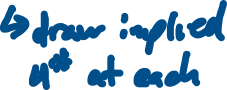 ↳ draw implied
4** at each